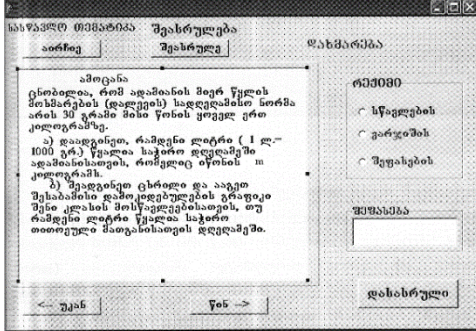 სასწავლო თემატიკა შეასრულება
აირჩიე შეასრულე დახმარება
ამოცანა
ცნობილია, რომ ადამიანის მიერ წყლის
მოხმარების (დალევის) სადღეღამისო ნორმა
არის 30 გრამი მისი წონის ყოველ ერთ
კილოგრამზე.
ა) დაადგინეთ, რამდენი ლიტრი ( 1 ლ.–
1000 გრ.) წყალია საჭირო დღეღამეში
ადამიანისათვის, რომელიც იწონის m
კილოგრამს.
ბ) შეადგინეთ ცხრილი და ააგეთ
შესაბამისი დამოკიდებულების გრაფიკი
შენი კლასის მოსწავლეებისათვის, თუ
რამდენი ლიტრი წყალია საჭირო
თითოეული მათგანისათვის დღეღამეში.
რეჟიმი
სწავლების
ვარჯიშის
შეფასების
შეფასება
<-- უკან წინ --> დასასრული